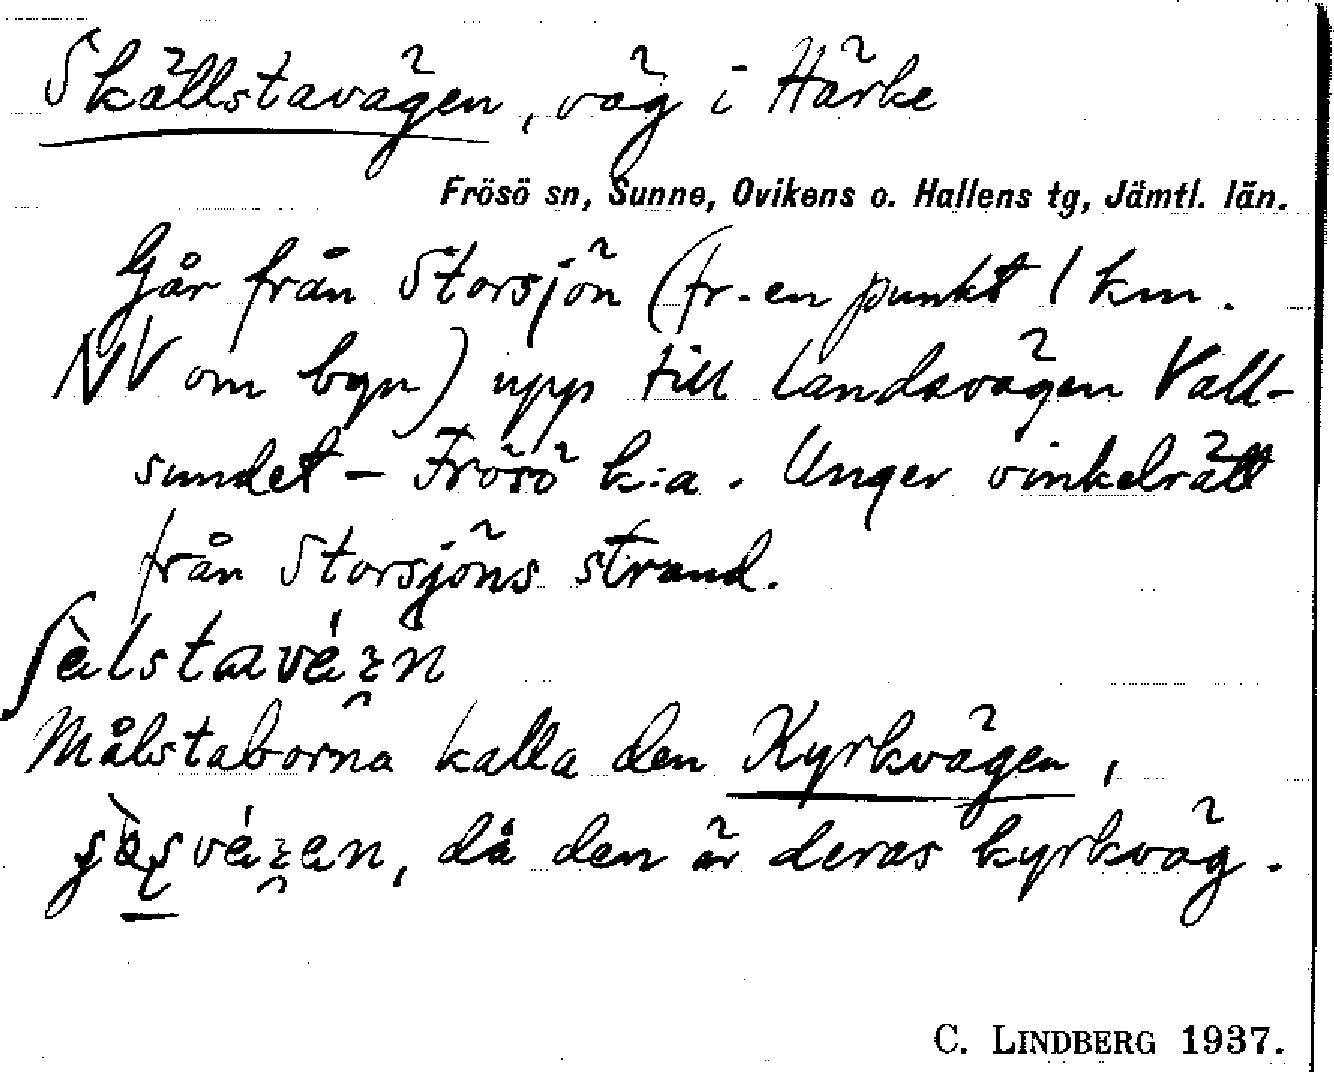 Skällstavägen, väg i Härke
Frösö sn, Sunne, Ovikens o. Hallens tg, Jämtl. län.
Går från Storsjön (fr. en punkt 1 km.
NV om byn) upp till landsvägen Vall-
sundet – Frösö k:a. Unger vinkelrätt
från Storsjöns strand.
Målstaborna kalla den Kyrkvägen,
då den är deras kyrkväg.
C. LINDBERG 1937.